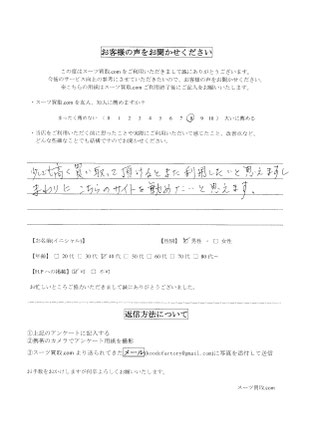 お客様の声をお聞かせください
この度はスーツ買取.comをご利用いただきまして誠にありがとうございます。
今後のサービス向上の参考にさせていただきたいので、お客様の声をお聞かせください。
※こちらの用紙はスーツ買取.comご利用終了後にご記入をお願いします。
・スーツ買取.comを友人、知人に薦めますか?
まったく薦めない ( 0 1 2 3 4 5 6 7 8 9 10 ) 大いに薦める
・当店をご利用いただく前に思ったことや実際にご利用いただいて感じたこと、改善点など、
どんな些細なことでも結構ですのでお聞かせください。
少しでも高く買い取って頂けるとまた利用したいと思えますし
まわりにこちらのサイトを勧めたいと思えます。
【お名前(イニシャル)】 【性別】 ☑ 男性 ・ □ 女性
【年齢】 □ 20代 □ 30代 ☑ 40代 □ 50代 □ 60代 □ 70代 □ 80代~
【HPへの掲載】 ☑ 可 □ 不可
お忙しいところご協力いただきまして誠にありがとうございました。
返信方法について
①上記のアンケートに記入する
②携帯のカメラでアンケート用紙を撮影
③スーツ買取.comより送られてきたメール(goodsfactory@gmail.com)に写真を添付して送信
お手数をおかけしますが何卒よろしくお願いいたします。
スーツ買取.com